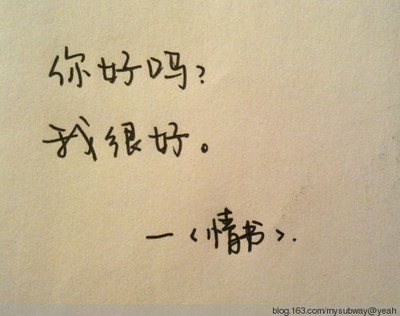 你好吗?
我很好。
—<情书>.
blog.163.com/mysubway@yeah